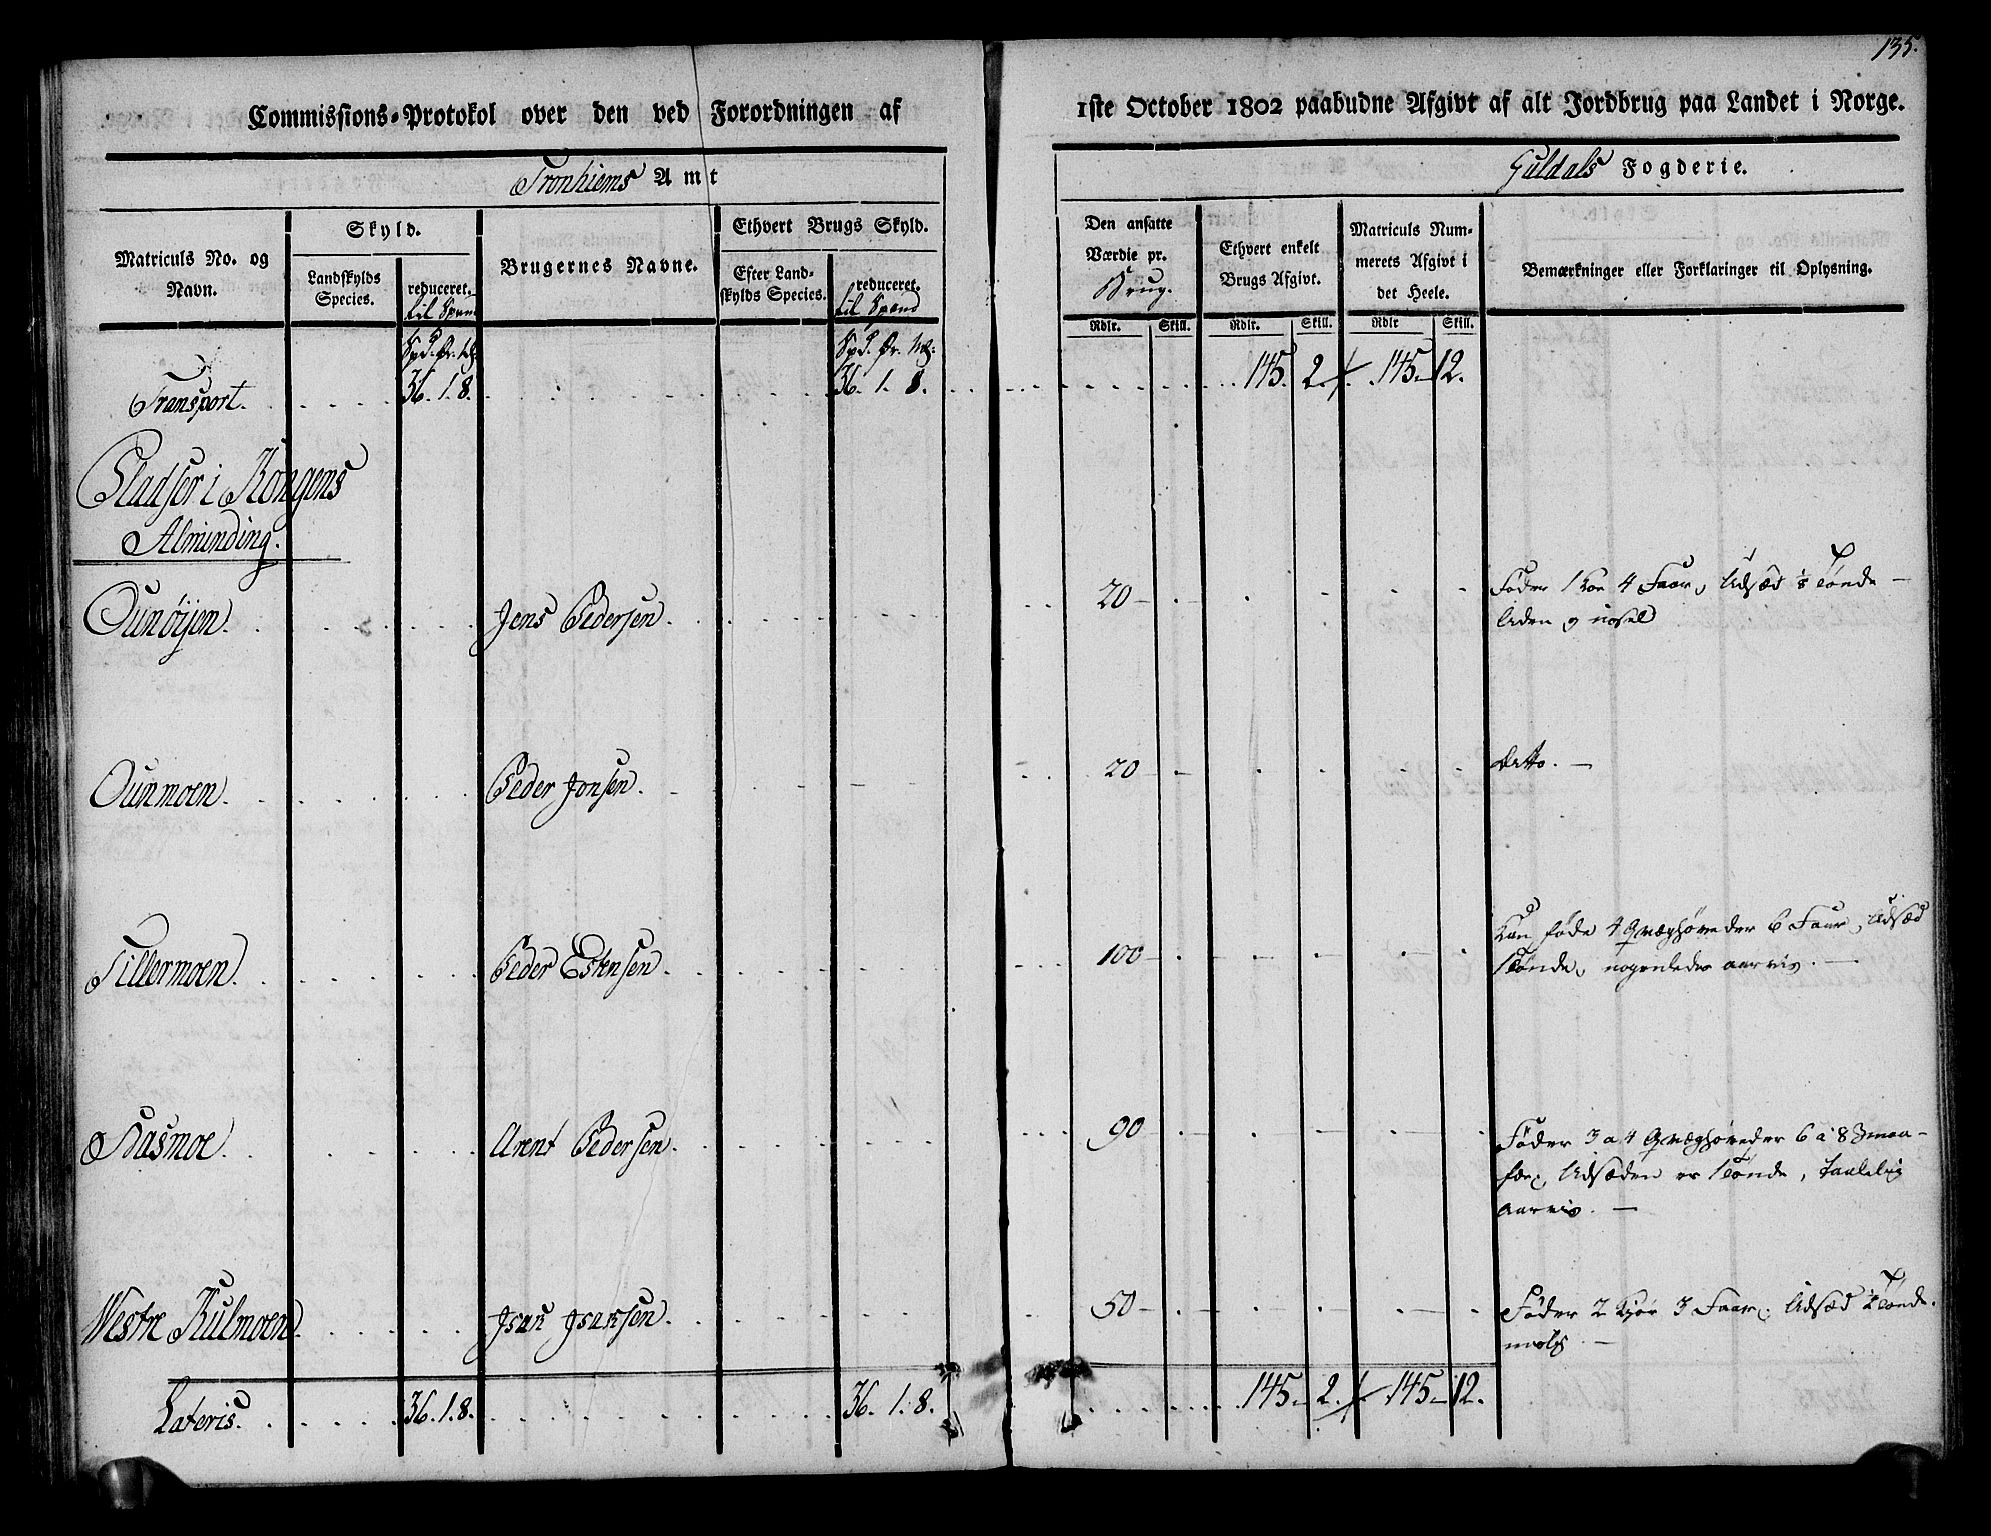 135.
Commissions-Protokol over den ved Forordningen af
1ste October 1802 paabudne Afgivt af alt Jordbrug paa Landet i Norge.
Tronhiems Amt
Guldals Fogderie.
Matriculs No. og Navn.
Skyld.
Landskylds Species.
reduceret til Spand
Brugernes Navne.
Ethvert Brugs Skyld.
Efter Landskylds Species.
reduceret til Spand
Den ansatte Værdie pr. Brug.
Ethvert enkelt Brugs Afgivt.
Matriculs Nummerets Afgivt i det Heele.
Bemærkninger eller Forklaringer til Oplysning.
Rdlr. Skill. Rdlr. Skill. Rdlr Skill.
Spd. Ør. Mk. Spd. Ør. Mk:
Transport. 36. 1. 8. 36. 1. 8. 145. 2. 145. 12.
Pladser i Kongens
Alminding.
Ounøijen. Jens Pedersen. 20 Føder 1 Koe 4 Faar, Udsæd ½ Tønde
Uden
Ounmoen. Peder Jonsen. 20 ditto.
Tillermoen. Peder Estensen. 100 Kan føde 4 Qvæghøveder 6 Faar, Udsæd
1 Tønde, nogenledes aarvis.
Aasmoe. Arent Pedersen. 90 Føder 3 a 4 Qvæghøveder 6 a 8 Smaa-
fæe, Udsæden er 1 Tønde, taalelig
aarvis.
Westre Kulmoen. Isak Isaksen. 50 Føder 2 Kjør 3 Faar. Udsæd ½ Tønde
Lateris. 36. 1. 8. 36. 1. 8. 145. 2. 145. 12.